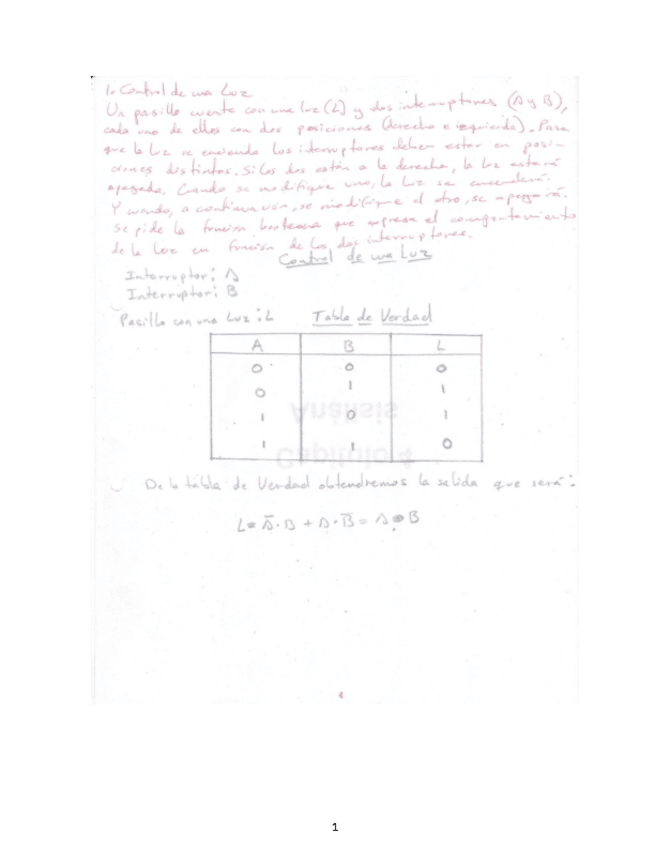 1. Control de una Luz
Un pasillo cuenta con una luz (L) y dos interruptores (A y B),
cada uno de ellos con dos posiciones (derecha e izquierda). Para
que la luz se encienda los interruptores deben estar en posi-
ciones distintas. Si los dos están a la derecha, la luz estará
apagada. Cuando se modifique uno, la luz se encenderá.
Y cuando, a continuación, se modifique el otro, se apagará.
Se pide la función booleana que expresa el comportamiento
de la luz en función de los dos interruptores.
Control de una Luz
Interruptor: A
Interruptor: B
Pasillo con una Luz: L Tabla de Verdad
A B L
0 0 0
0 1 1
1 0 1
1 1 0
Análisis
Capítulo 4
De la tabla de Verdad obtendremos la salida que será:
L = A̅·B + A·B̅ = A ⊕ B
4
1